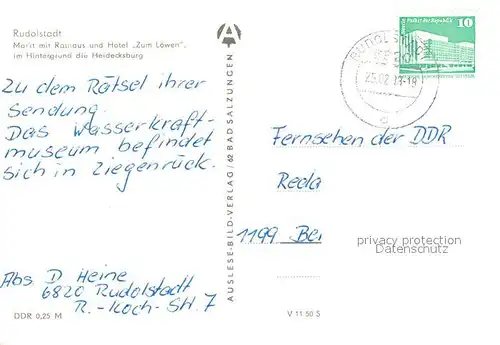 Rudolstadt
Markt mit Rathaus und Hotel „Zum Löwen",
im Hintergrund die Heidecksburg
Zu dem Rätsel ihrer
Sendung.
Das Wasserkraft-
museum befindet
sich in Ziegenrück.
Abs. D Heine
6820 Rudolstadt
R.-Koch-Str. 7
DDR 0,25 M
AUSLESE-BILD-VERLAG / 62 BAD SALZUNGEN
A
Palast der Republik
10
Fernsehen der DDR
Reda
1199 Ber
privacy protection
Datenschutz
V 11 50 S